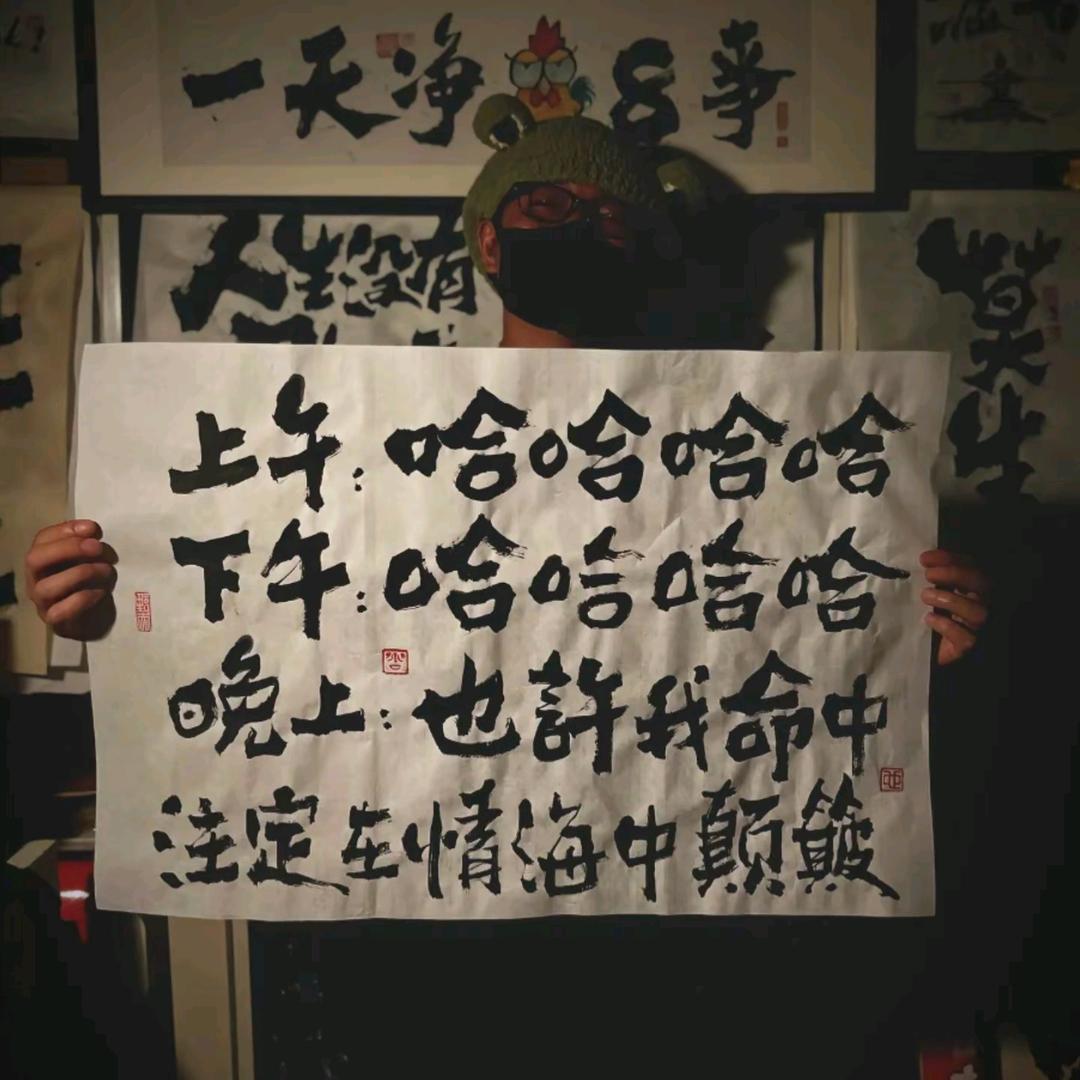 一天净8事
人生没有
莫生
上午:哈哈哈哈
下午:哈哈哈哈
晚上:也許我命中
注定在情海中顛簸